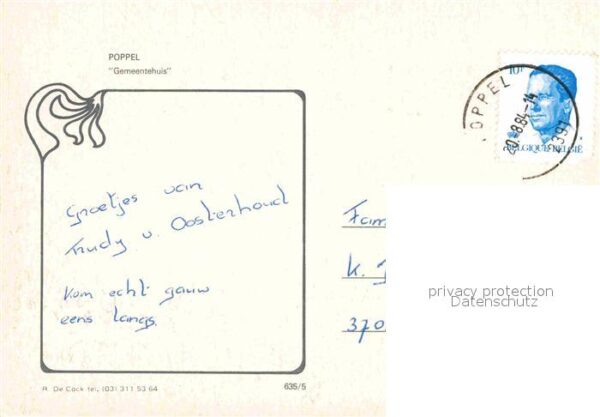 POPPEL
"Gemeentehuis"
10F
POPPEL
20.-8.84-14
2391
BELGIQUE·BELGIË
Groetjes van
Trudy v. Oosterhoud
Kom echt gauw
eens langs.
Fam
K.
370
privacy protection
Datenschutz
R. De Cock tel. (03) 311 53 64
635/5